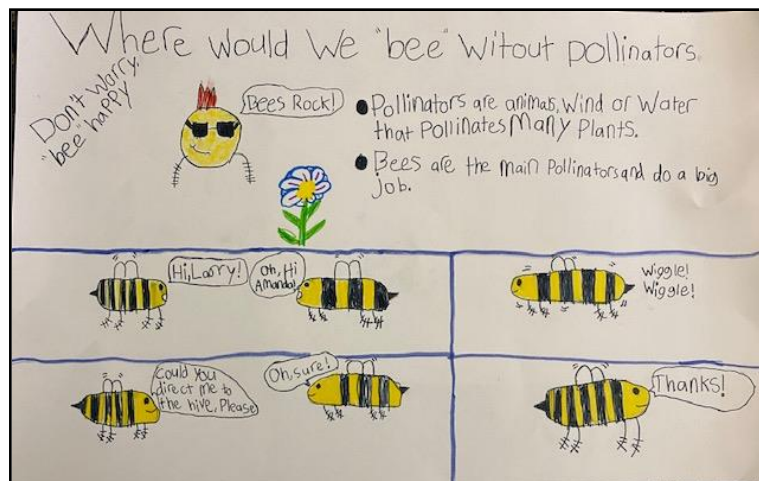 Where would We "bee" Witout pollinators.
Don't worry,
"bee" happy
Bees Rock!
• Pollinators are animals, Wind or Water
that Pollinates Many Plants.
• Bees are the main Pollinators and do a big
job.
Hi, Larry!
Oh, Hi
Amanda!
Wiggle!
Wiggle!
Could You
direct me to
the hive, Please
Oh, sure!
Thanks!